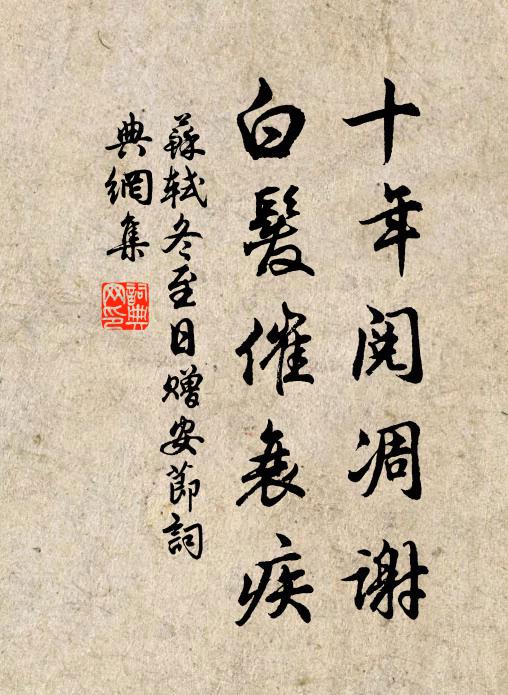 十年閱凋謝
白髮催衰疾
蘇軾冬至日贈安節詞
典網集
詞典網印